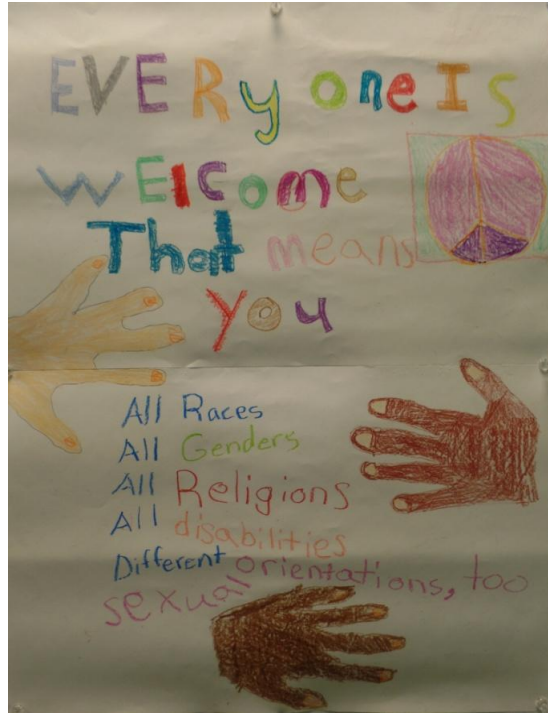 EVERyone Is
WElcome
That means
you
All Races
All Genders
All Religions
All disabilities
Different orientations, too
sexual